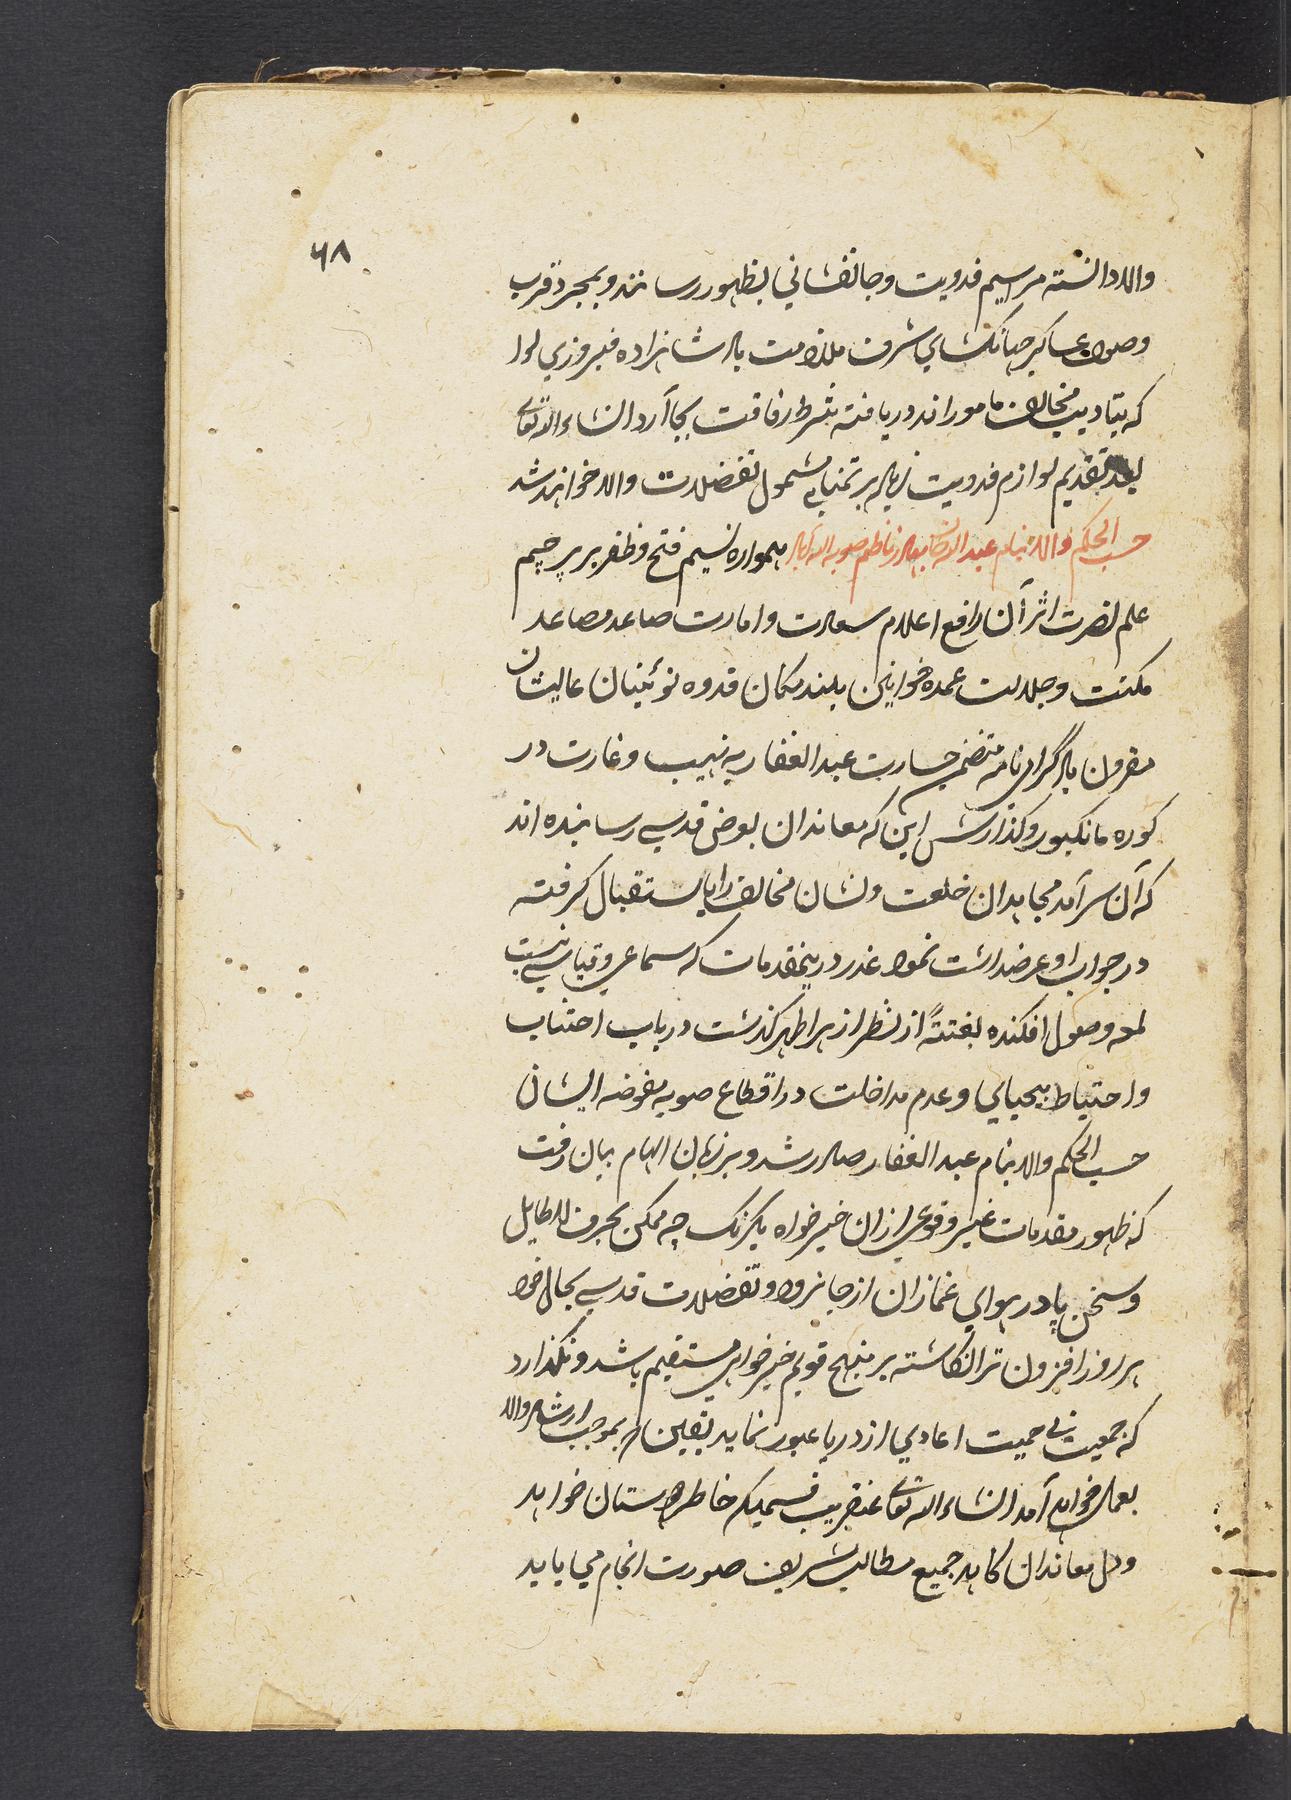 ۶۸
والا دانسته مراسیم فدویت و جانفشانی بظهور رسانند و بمجرد قرب
وصول عساکر جهانکشای شرف ملازمت پادشاهزاده فیروزی لوا
که بتادیب مخالف مامور اند دریافته بشرط رفاقت بجا آرد انشاء الله تعالی
بعد تقدیم لوازم فدویت زیاده بر تمنیات مشمول تفضلات والا خواهند شد
حسب الحکم والا بنام عبد الله خان بهادر ناظم صوبه اله آباد همواره نسیم فتح و ظفر بر پرچم
علم نصرت اثر آن رافع اعلام سعادت و امارت صاعد مصاعد
مکنت و جلالت عمده خوانین بلند مکان قدوه نوئینان عالیشان
مقرون باد گرامی نامه متضمن جسارت عبد الغفار به نهیب و غارت در
کوره مانکپور و گذارش این که معاندان بعرض قدسی رسانیده اند
که آن سرآمد مجاهدان خلعت و نشان مخالف را باستقبال گرفته
در جواب او عرضداشت نمود عذر درینمقدمات که سماعی و قیاسی نیست
لمعه وصول افکنده بغتتةً از نظر ازهر اطهر گذشت در باب اجتناب
و احتیاط بیحیایی و عدم مداخلت در اقطاع صوبه مفوضه ایشان
حسب الحکم والا بنام عبد الغفار صادر شد و بر زبان الهام بیان رفت
که ظهور مقدمات غیر وقوعی ازان خیرخواه یکرنک چه ممکن بحرف لاطایل
و سخن پا در هوای غمازان از جا نرود و تفضلات قدسی بحال خود
هر روز افزون تر انکاشته بر منهج قویم خیرخواهی مستقیم باشد و نگذارد
که جمعیت بی حمیت اعادی از دریا عبور نماید یقین که بموجب ارشاد والا
بعمل خواهد آمد انشاء الله تعالی عنقریب قسمیکه خاطر دوستان خواهد
و دل معاندان کاهد جمیع مطالب شریف صورت انجام می یابد